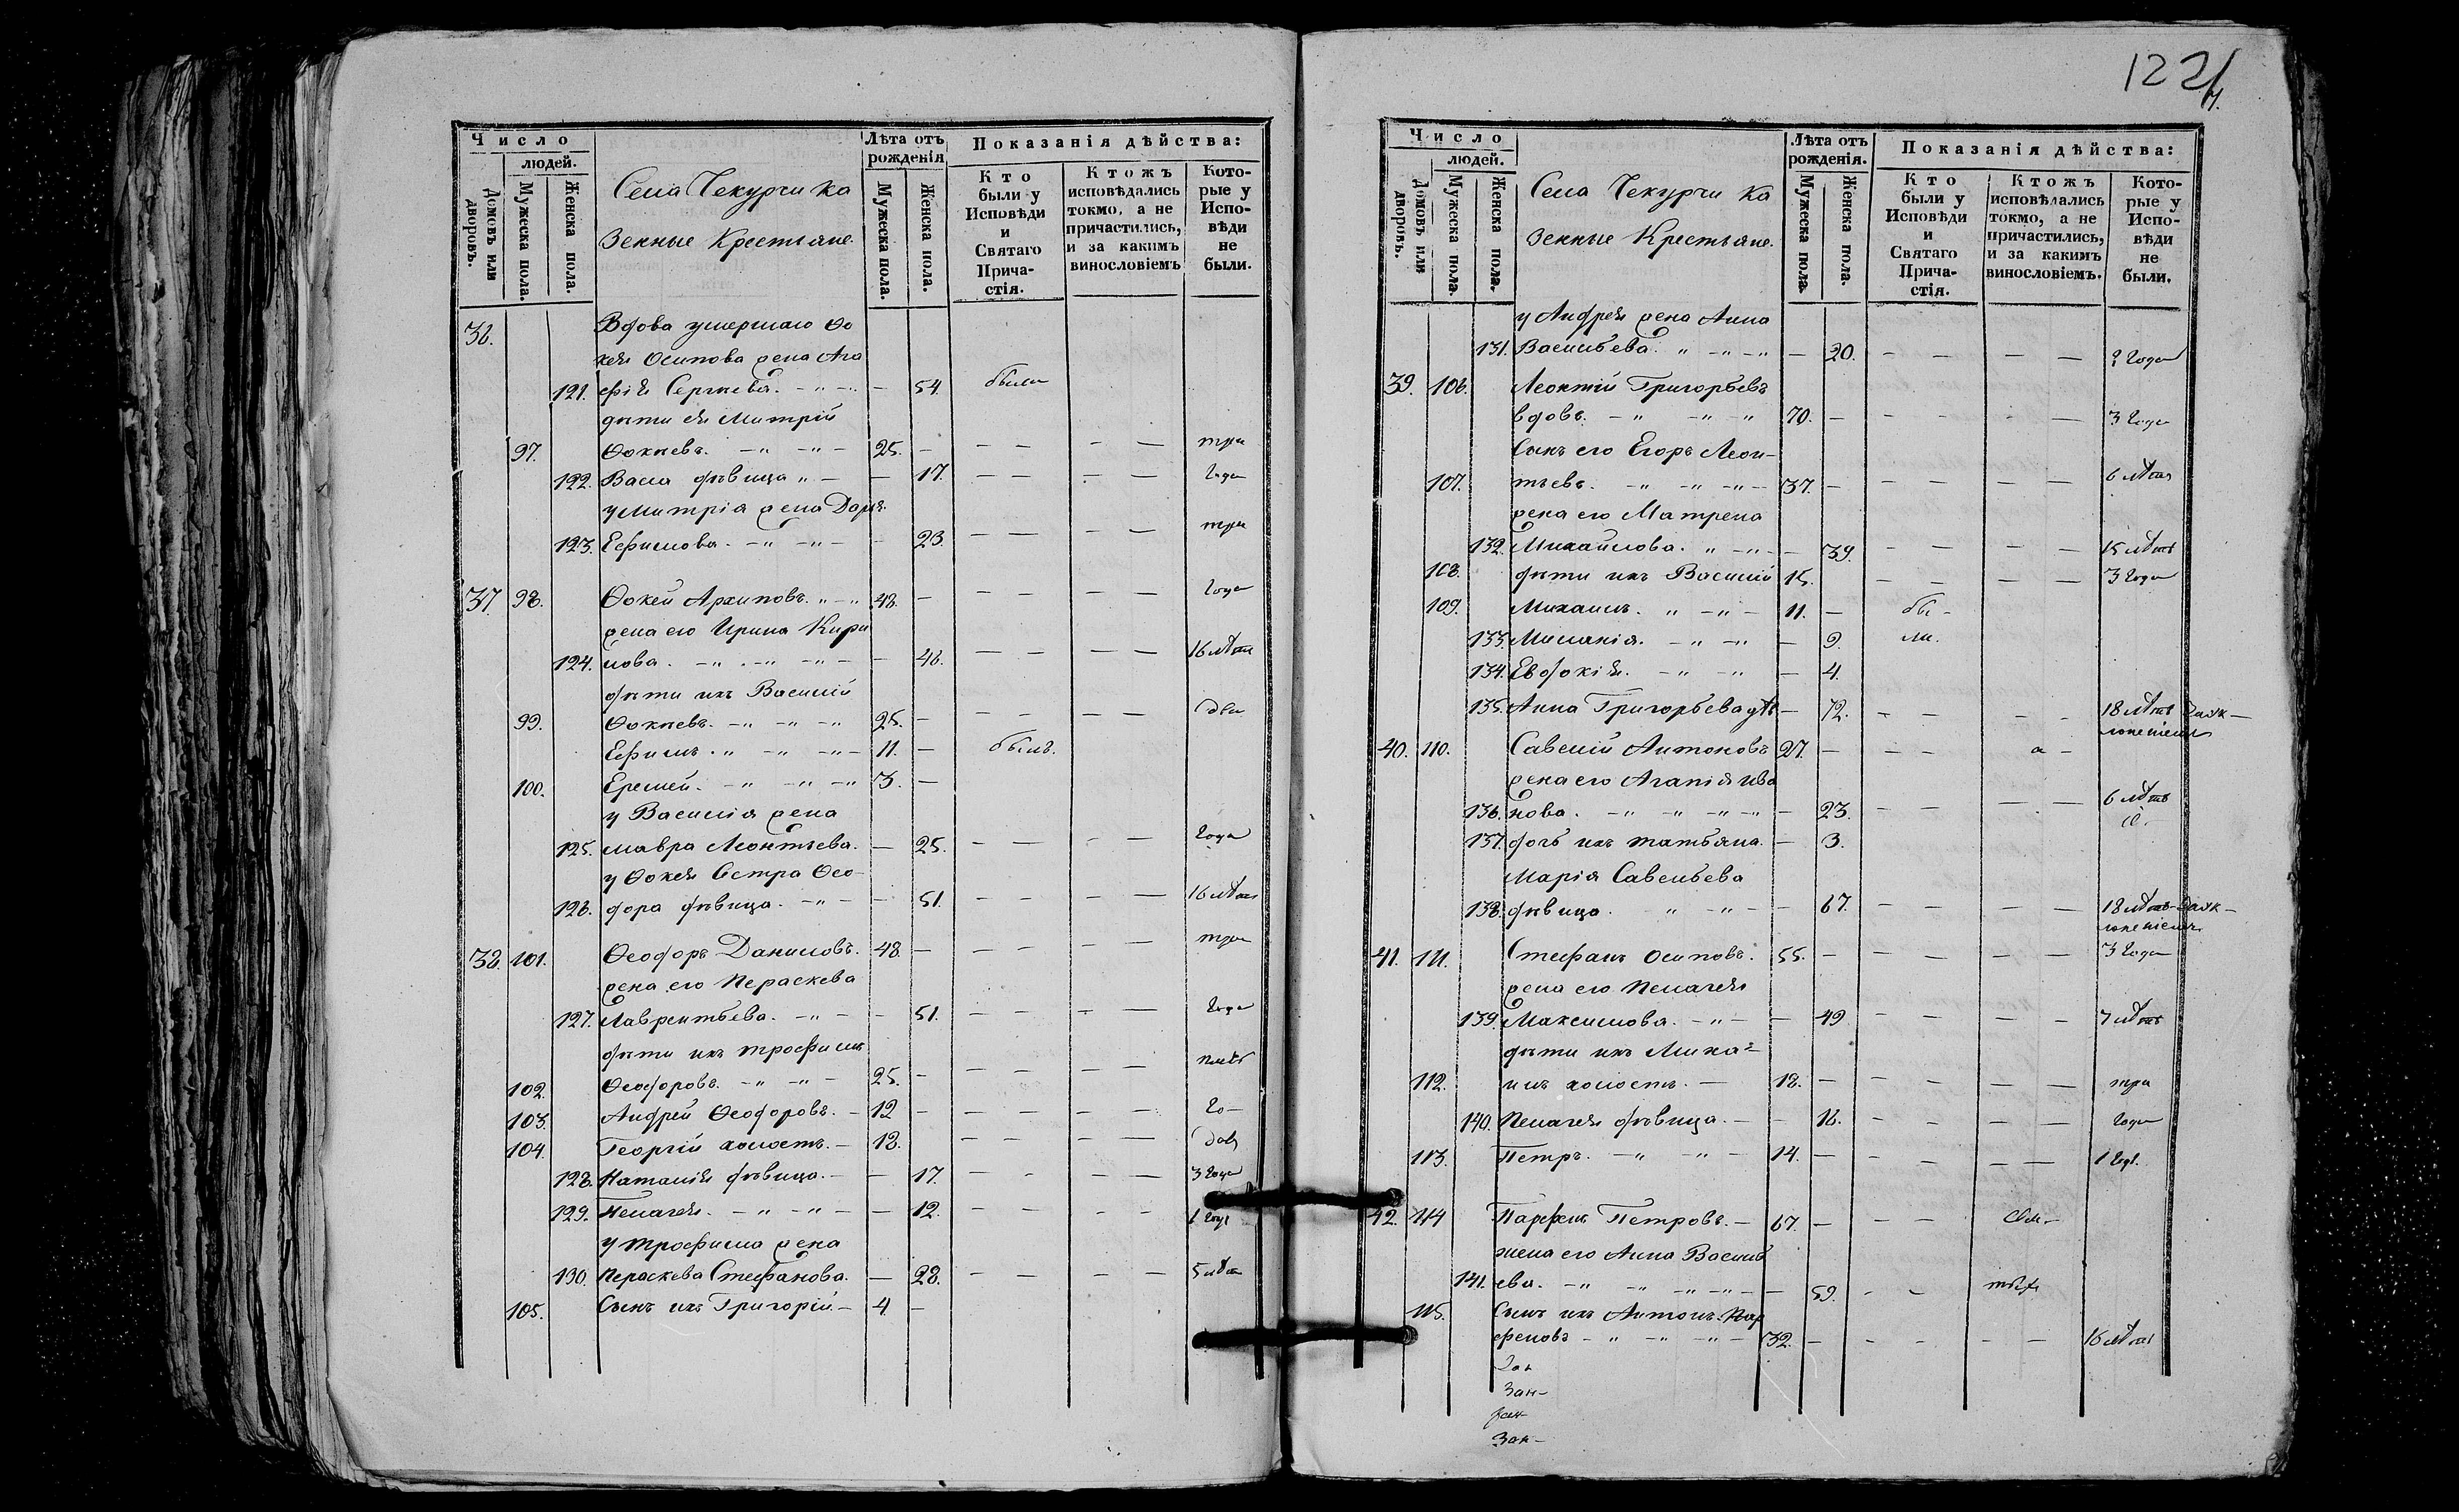 122
Число
людей.
Домовъ или дворовъ.
Мужеска пола.
Женска пола.
Села Чекурчи ка
зенные Крестьяне.
Лѣта отъ рожденія
Мужеска пола.
Женска пола.
Показанія дѣйства:
Кто были у Исповѣди и Святаго Прича-стія.
Ктожъ исповѣдались токмо, а не причастились, и за какимъ винословіемъ
Кото-рые у Испо-вѣди не были.
36. Вдова умершаго Ѳо
кея Осипова жена Ага
121. фія Сергѣева. — 54. была
дѣти ея Митрій
97. Ѳокѣевъ. 25. — три
122. Васса дѣвица — 17. года
у Митрія жена Дарья
123. Ефимова. — 23. три
37. 98. Ѳокей Архиповъ. 48. — года
жена его Ирина Кири
124. лова. — 46. 16 лѣтъ
дѣти ихъ Василій
99. Ѳокѣевъ. 25. — два
Ефимъ. 11. — былъ.
100. Еремей. 3. —
у Василія жена
125. мавра Леонтьева. — 25. года
у Ѳокея Сестра Ѳео-
126. дора дѣвица. — 51. 16 лѣтъ
38. 101. Ѳеодоръ Даниловъ. 48. — три
жена его Пераскева
127. Лаврентьева. — 51. года
дѣти ихъ трофимъ
102. Ѳеодоровъ. 25. —
103. Андрей Ѳеодоровъ. — 12 — го-
104. Георгій холостъ. — 18.
128. Наталія дѣвица. — 17. 3 года
129. Пелагея. — 12. 1 годъ
у трофима жена
130. Пераскева Стефанова. — 28. 5 лѣтъ
105. Сынъ ихъ Григорій. — 4 —
Число
людей.
Домовъ или дворовъ.
Мужеска пола.
Женска пола.
Села Чекурчи ка
зенные Крестьяне.
Лѣта отъ рожденія.
Мужеска пола.
Женска пола.
Показанія дѣйства:
Кто были у Исповѣди и Святаго Прича-стія.
Ктожъ исповѣдались токмо, а не причастились, и за какимъ винословіемъ.
Кото-рые у Испо-вѣди не были.
у Андрея жена Анна
131. Васильева. — 20. 2 года
39. 106. Леонтій Григорьевъ
вдовъ. 70. — 3 года
Сынъ его Егоръ Леон-
107. тьевъ. 37. — 6 лѣтъ
жена его Матрена
132. Михайлова. — 39. 15 лѣтъ
108. дѣти ихъ Василій 15. 3 года
109. Михаилъ. 11. — бы-
133. Миланія. — 9. ли.
134. Евдокія. — 4.
135. Анна Григорьева дѣв — 72. 18 лѣтъ
40. 110. Савелій Антоновъ 27. —
жена его Агапія ива
136. нова. — 23. 6 лѣтъ
137. дочь ихъ татьяна. — 3.
Марія Савельева
138. дѣвица. — 67. 18 лѣтъ
41. 111. Стефанъ Осиповъ. 55. — 3 года
жена его Пелагея
139. Максимова. — 49 7 лѣтъ
дѣти ихъ Миха-
112. илъ холостъ. — 18. — три
140. Пелагея дѣвица. — 16. года
113. Петръ. 14. — 1 годъ.
42. 114 Парфенъ Петровъ. — 67. —
жена его Анна Василь
141. ева. — 59.
115. Сынъ ихъ Антонъ Пар
феновъ 32. — 16 лѣтъ